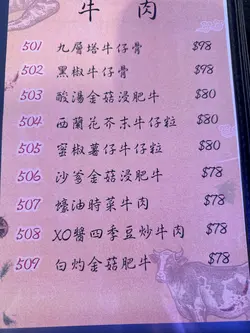 牛肉
501 九層塔牛仔骨 $98
502 黑椒牛仔骨 $98
503 酸湯金菇浸肥牛 $80
504 西蘭花芥末牛仔粒 $80
505 蜜椒薯仔牛仔粒 $80
506 沙爹金菇肥牛 $78
507 蠔油時菜牛肉 $78
508 XO醬四季豆炒牛肉 $78
509 白灼金菇肥牛 $78